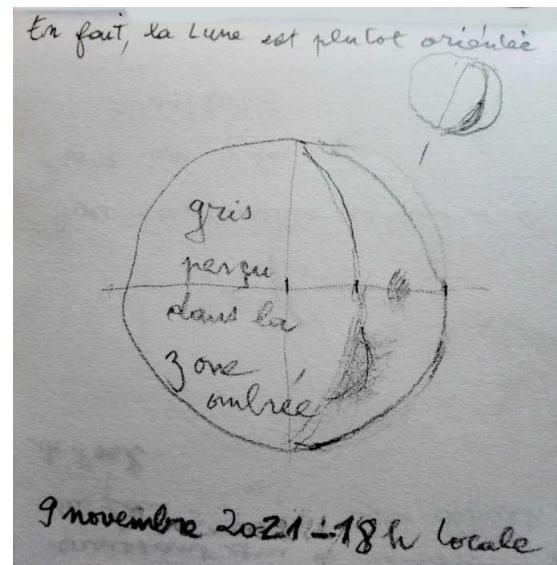 En fait, la Lune est plutot orientée
gris
perçu
dans la
zone
ombrée
9 novembre 2021 - 18h locale